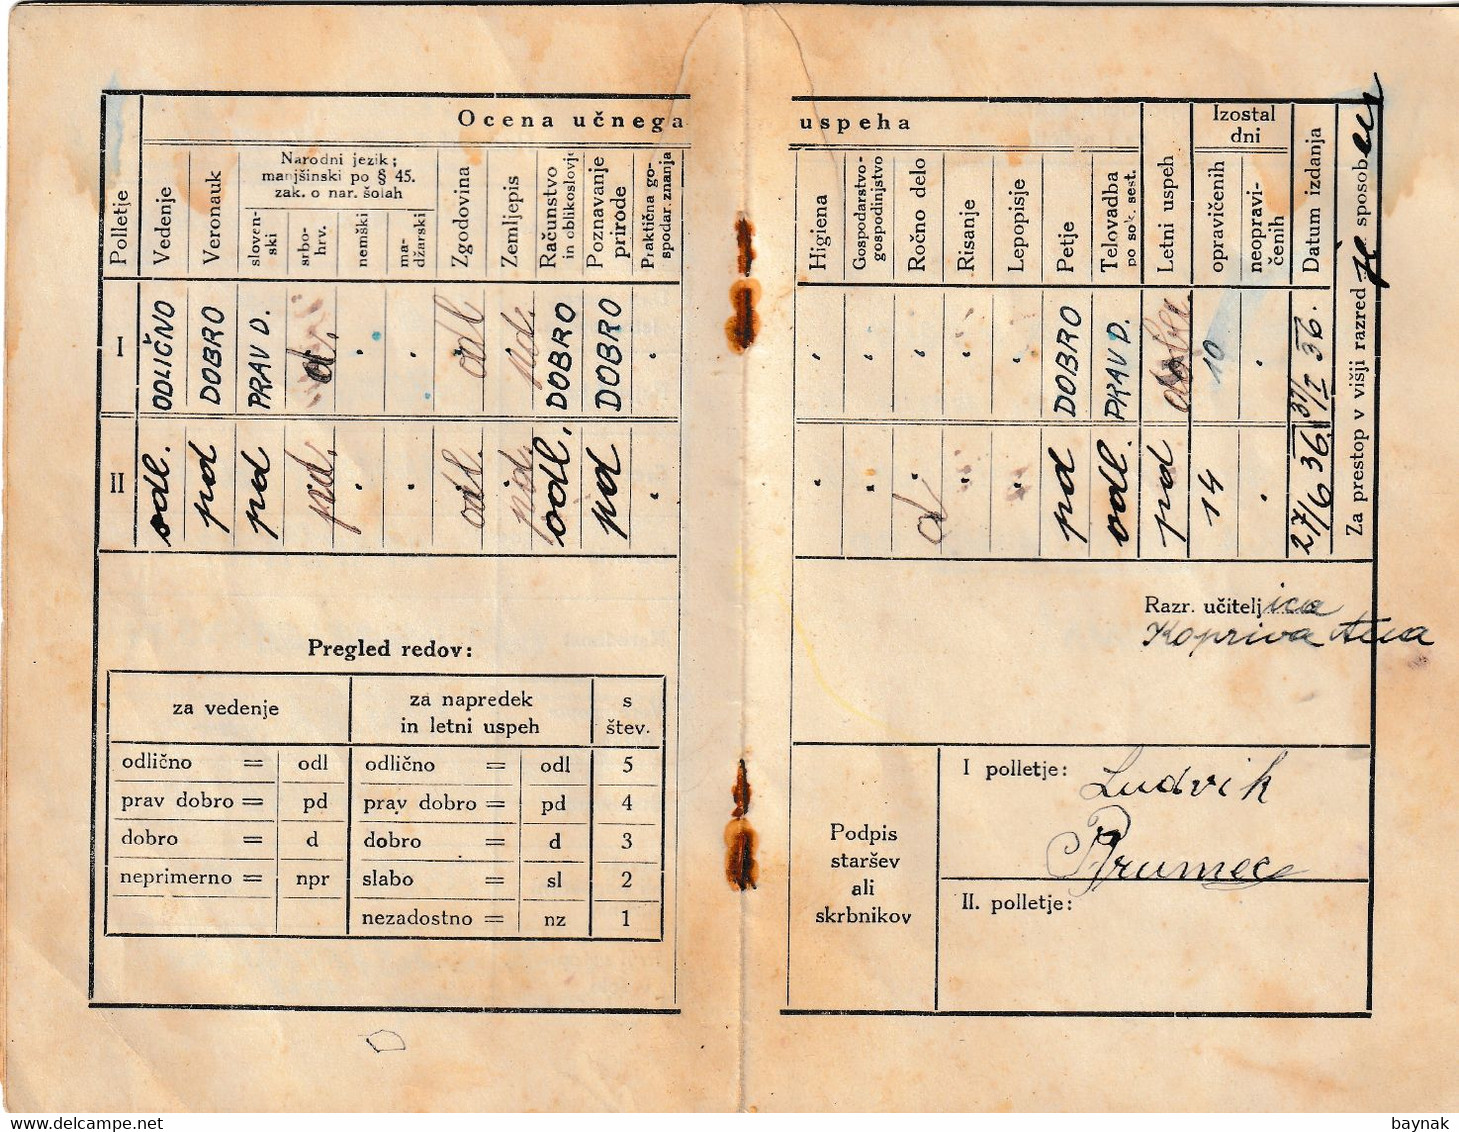 Ocena učnega uspeha
Polletje
Vedenje
Veronauk
Narodni jezik;
manjšinski po § 45.
zak. o nar. šolah
sloven-
ski
srbo-
hrv.
nemški
ma-
džarski
Zgodovina
Zemljepis
Računstvo
in oblikoslovje
Poznavanje
prirode
Praktična go-
spodar. znanja
Higiena
Gospodarstvo-
gospodinjstvo
Ročno delo
Risanje
Lepopisje
Petje
Telovadba
po sok. sest.
Letni uspeh
Izostal
dni
opravičenih
neopravi-
čenih
Datum izdanja
Za prestop v višji razred je sposoben
I ODLIČNO DOBRO PRAV D. d. . . odl pd. DOBRO DOBRO . . . . . . DOBRO PRAV D. dober 10 . 31/I 36.
II odl. pd pd pd. . . odl. pd. odl. pd . . . d . . pd odl. pd 14 . 27/6 36.
Razr. učiteljica
Kopriva Ana
Pregled redov:
za vedenje
za napredek
in letni uspeh
s
štev.
odlično = odl odlično = odl 5
prav dobro = pd prav dobro = pd 4
dobro = d dobro = d 3
neprimerno = npr slabo = sl 2
nezadostno = nz 1
Podpis
staršev
ali
skrbnikov
I polletje:
Ludvik
Brumec
II. polletje:
baynak